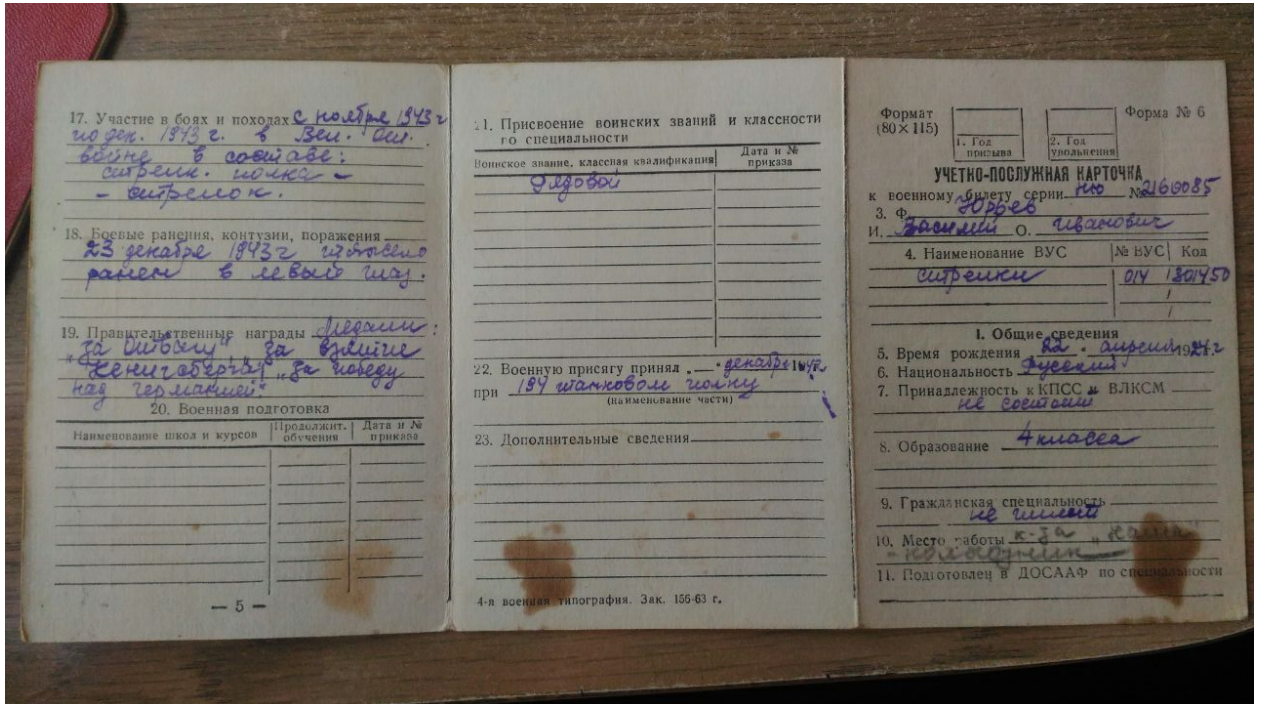 17. Участие в боях и походах с ноября 1943 г
по дек. 1943 г. в Вел. От.
войне в составе:
стрелк. полка –
– стрелок.
18. Боевые ранения, контузии, поражения
23 декабря 1943 г тяжело
ранен в левый глаз.
19. Правительственные награды Медали:
„За отвагу", За взятие
Кенигсберга, „За победу
над германией."
20. Военная подготовка
Наименование школ и курсов
Продолжит. обучения
Дата и № приказа
— 5 —
21. Присвоение воинских званий и классности
го специальности
Воинское звание, классная квалификация
Дата и № приказа
Рядовой
22. Военную присягу принял „ — " декабря
при 194 танковом полку
(наименование части)
23. Дополнительные сведения
4-я военная типография. Зак. 156-63 г.
Формат
(80×115)
1. Год
призыва
2. Год
увольнения
Форма № 6
УЧЕТНО-ПОСЛУЖНАЯ КАРТОЧКА
к военному билету серии НЮ № 2160085
3. Ф. Юрьев
И. Василий О. Иванович
4. Наименование ВУС
№ ВУС
Код
стрелки 014 801450
1. Общие сведения
5. Время рождения 22 апреля
6. Национальность Русский
7. Принадлежность к КПСС и ВЛКСМ
не состоит
8. Образование 4 класса
9. Гражданская специальность
не имеет
10. Место работы к-за
- колхозник
11. Подготовлен в ДОСААФ по специальности